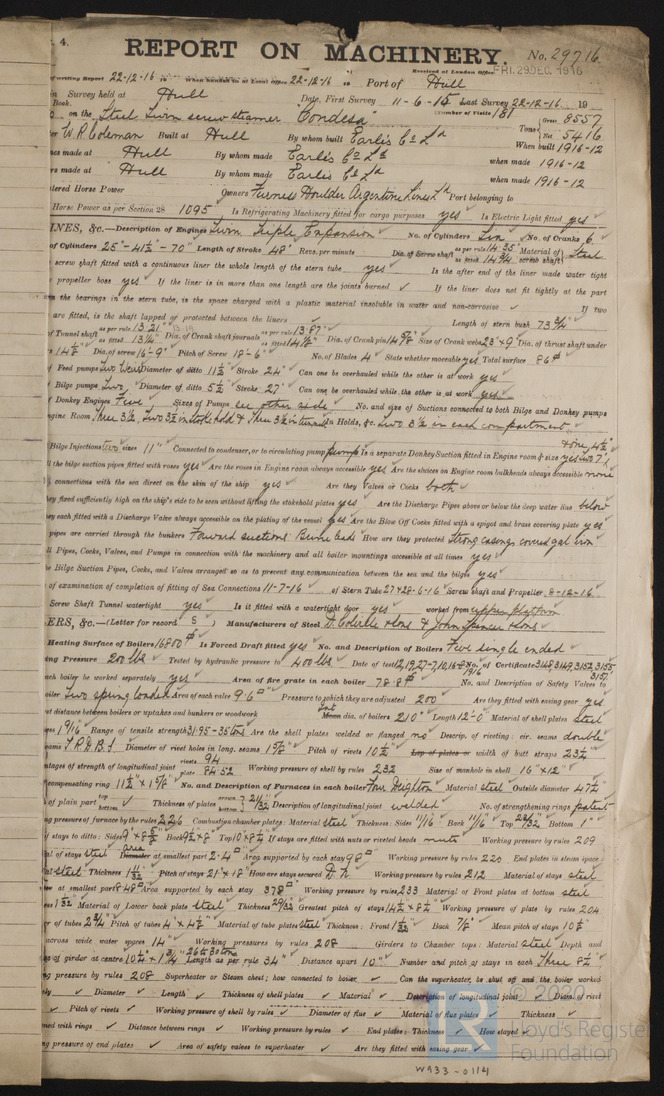 4.
REPORT ON MACHINERY. No. 29716
Received at London Office FRI. 29 DEC. 1916
Report 22-12-16 When handed in at Local Office 22-12-16 Port of Hull
Survey held at Hull Date, First Survey 11-6-15 Last Survey 22-12-16 19
Book. Number of Visits 181
on the Steel Twin screw steamer "Condesa" Tons Gross 8557 Net 5416
W.R. Coleman Built at Hull By whom built Earle's Co Ld When built 1916-12
made at Hull By whom made Earle's Co Ld when made 1916-12
made at Hull By whom made Earle's Co Ld when made 1916-12
Horse Power Owners Furness Houlder Argentine Lines Ld Port belonging to
Horse Power as per Section 28 1095 Is Refrigerating Machinery fitted for cargo purposes yes Is Electric Light fitted yes
INES, &c.—Description of Engines Twin Triple Expansion No. of Cylinders Six No. of Cranks 6
of Cylinders 25"-41½"-70" Length of Stroke 48" Revs. per minute Dia. of Screw shaft as per rule 14.35" as fitted 14¾" Material of screw shaft Steel
screw shaft fitted with a continuous liner the whole length of the stern tube yes Is the after end of the liner made water tight
propeller boss yes If the liner is in more than one length are the joints burned ✓ If the liner does not fit tightly at the part
the bearings in the stern tube, is the space charged with a plastic material insoluble in water and non-corrosive ✓ If two
are fitted, is the shaft lapped or protected between the liners ✓ Length of stern bush 73¾"
of Tunnel shaft as per rule 13.21" as fitted 13¾" Dia. of Crank shaft journals as per rule 13.87" as fitted 14⅛" Dia. of Crank pin 14⅝" Size of Crank webs 23"×9" Dia. of thrust shaft under
14⅛" Dia. of screw 16'-9" Pitch of Screw 18'-6" No. of Blades 4 State whether moveable yes Total surface 86
of Feed pumps Two Weirs Diameter of ditto 11½" Stroke 24" Can one be overhauled while the other is at work yes
Bilge pumps Two Diameter of ditto 5½" Stroke 27" Can one be overhauled while the other is at work yes
of Donkey Engines Five Sizes of Pumps see other side No. and size of Suctions connected to both Bilge and Donkey pumps
Engine Room Three 3½, Two 3½ in stokehold & Three 3½ in tunnel In Holds, &c. Two 3½ in each compartment
& one 4½
Bilge Injections Two sizes 11" Connected to condenser, or to circulating pump pump Is a separate Donkey Suction fitted in Engine room & size yes two 7"
the bilge suction pipes fitted with roses yes Are the roses in Engine room always accessible yes Are the sluices on Engine room bulkheads always accessible none
connections with the sea direct on the skin of the ship yes Are they Valves or Cocks both
they fixed sufficiently high on the ship's side to be seen without lifting the stokehold plates yes Are the Discharge Pipes above or below the deep water line below
they each fitted with a Discharge Valve always accessible on the plating of the vessel yes Are the Blow Off Cocks fitted with a spigot and brass covering plate yes
pipes are carried through the bunkers Forward suctions How are they protected Strong casings covered gal iron
Pipes, Cocks, Valves, and Pumps in connection with the machinery and all boiler mountings accessible at all times yes
Bilge Suction Pipes, Cocks, and Valves arranged so as to prevent any communication between the sea and the bilges yes
of examination of completion of fitting of Sea Connections 11-7-16 of Stern Tube 27 & 28-6-16 Screw shaft and Propeller 8-12-16
Screw Shaft Tunnel watertight yes Is it fitted with a watertight door yes worked from upper platform
ERS, &c.— (Letter for record S ) Manufacturers of Steel D. Colville & Sons & John Spencer & Sons
Heating Surface of Boilers 16800 Is Forced Draft fitted yes No. and Description of Boilers Five single ended
Pressure 200 lbs Tested by hydraulic pressure to 400 lbs Date of test No. of Certificate 3148, 3149, 3152, 3155, 3157
each boiler be worked separately yes Area of fire grate in each boiler 78.8 No. and Description of Safety Valves to
boiler Two spring loaded Area of each valve 9.6 Pressure to which they are adjusted 200 Are they fitted with easing gear yes
distance between boilers or uptakes and bunkers or woodwork Int Mean dia. of boilers 210" Length 12'-0" Material of shell plates steel
1 9/16" Range of tensile strength 31.95-35 tons Are the shell plates welded or flanged no Descrip. of riveting: cir. seams double
seams T.R.D.B.S Diameter of rivet holes in long. seams 1⅝" Pitch of rivets 10½" Lap of plates or width of butt straps 23½"
percentages of strength of longitudinal joint rivets 94 plate 84.52 Working pressure of shell by rules 232 Size of manhole in shell 16"×12"
compensating ring 11½"×1⅝" No. and Description of Furnaces in each boiler Four Deighton Material steel Outside diameter 47½"
of plain part top bottom ✓ Thickness of plates crown bottom 21/32" Description of longitudinal joint welded No. of strengthening rings patent
pressure of furnace by the rules 226 Combustion chamber plates: Material steel Thickness: Sides 11/16" Back 11/16" Top 23/32" Bottom 1"
of stays to ditto: Sides 9"×8⅝ Back 9½×8 Top 10×8½ If stays are fitted with nuts or riveted heads nuts Working pressure by rules 209
of stays steel area Diameter at smallest part 2.4 Area supported by each stay 98 Working pressure by rules 220 End plates in steam space
steel Thickness 1 11/32 Pitch of stays 21"×18" How are stays secured D.N. Working pressure by rules 212 Material of stays steel
at smallest part 8.48 Area supported by each stay 378 Working pressure by rules 233 Material of Front plates at bottom steel
1 1/32 Material of Lower back plate steel Thickness 29/32 Greatest pitch of stays 14½×8½ Working pressure of plate by rules 204
of tubes 2¾" Pitch of tubes 4"×4⅛" Material of tube plates steel Thickness: Front 1 1/32 Back ⅞" Mean pitch of stays 10½"
across wide water spaces 14" Working pressures by rules 208 Girders to Chamber tops: Material steel Depth and
of girder at centre 10½×1¾ 26 to 30 tons Length as per rule 34" Distance apart 10" Number and pitch of stays in each Three 8½"
pressure by rules 208 Superheater or Steam chest; how connected to boiler ✓ Can the superheater be shut off and the boiler worked
✓ Diameter ✓ Length ✓ Thickness of shell plates ✓ Material ✓ Description of longitudinal joint ✓ Diam. of rivet
✓ Pitch of rivets ✓ Working pressure of shell by rules ✓ Diameter of flue ✓ Material of flue plates ✓ Thickness ✓
with rings ✓ Distance between rings ✓ Working pressure by rules ✓ End plates: Thickness ✓ How stayed
pressure of end plates ✓ Area of safety valves to superheater ✓ Are they fitted with easing gear ✓
© 2020
Lloyd's Register
Foundation
W933-0114